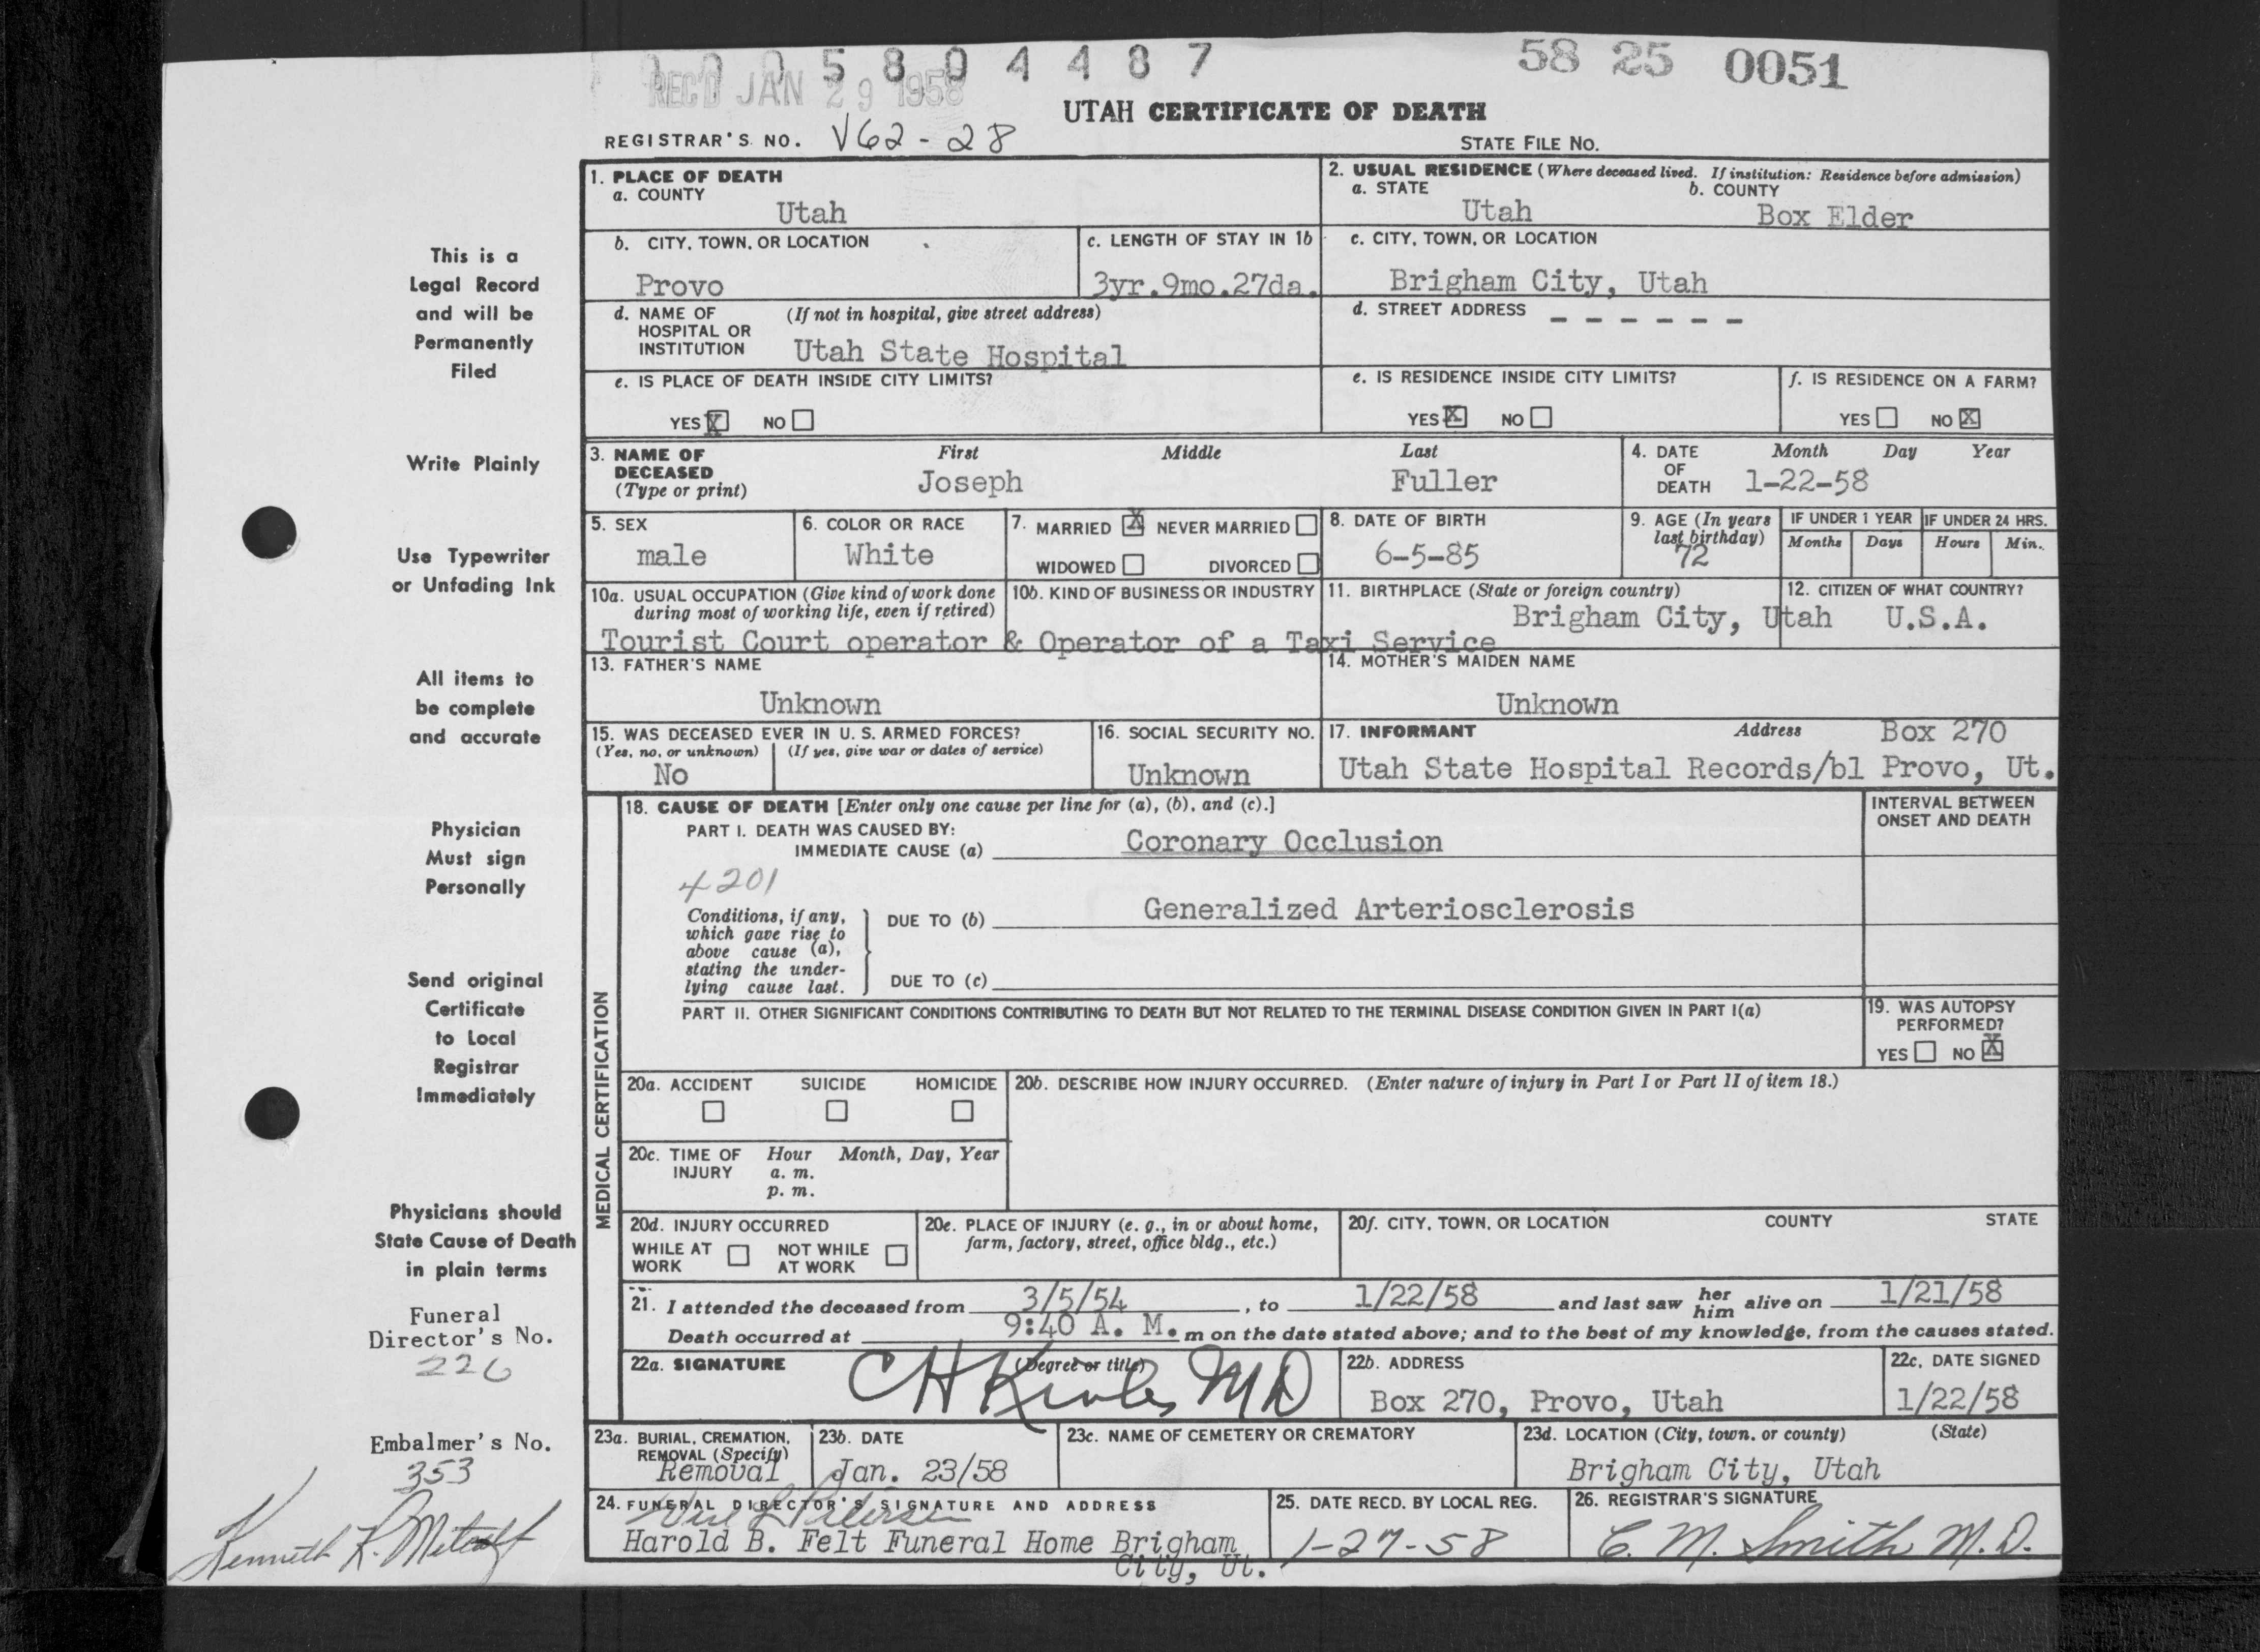 1005804487
58 25 0051
REC'D JAN 29 1958
UTAH CERTIFICATE OF DEATH
REGISTRAR'S NO. V62-28
STATE FILE NO.
1. PLACE OF DEATH
a. COUNTY
Utah
2. USUAL RESIDENCE (Where deceased lived. If institution: Residence before admission)
a. STATE
Utah
b. COUNTY
Box Elder
b. CITY, TOWN, OR LOCATION
Provo
c. LENGTH OF STAY IN 1b
3yr.9mo.27da.
c. CITY, TOWN, OR LOCATION
Brigham City, Utah
d. NAME OF HOSPITAL OR INSTITUTION (If not in hospital, give street address)
Utah State Hospital
d. STREET ADDRESS - - - - - -
e. IS PLACE OF DEATH INSIDE CITY LIMITS?
YES X NO
e. IS RESIDENCE INSIDE CITY LIMITS?
YES X NO
f. IS RESIDENCE ON A FARM?
YES NO X
3. NAME OF DECEASED (Type or print)
First Middle Last
Joseph Fuller
4. DATE OF DEATH
Month Day Year
1-22-58
5. SEX
male
6. COLOR OR RACE
White
7. MARRIED X NEVER MARRIED
WIDOWED DIVORCED
8. DATE OF BIRTH
6-5-85
9. AGE (In years last birthday)
72
IF UNDER 1 YEAR
Months Days
IF UNDER 24 HRS.
Hours Min.
10a. USUAL OCCUPATION (Give kind of work done during most of working life, even if retired)
10b. KIND OF BUSINESS OR INDUSTRY
Tourist Court operator & Operator of a Taxi Service
11. BIRTHPLACE (State or foreign country)
Brigham City, Utah
12. CITIZEN OF WHAT COUNTRY?
U.S.A.
13. FATHER'S NAME
Unknown
14. MOTHER'S MAIDEN NAME
Unknown
15. WAS DECEASED EVER IN U. S. ARMED FORCES?
(Yes, no, or unknown) (If yes, give war or dates of service)
No
16. SOCIAL SECURITY NO.
Unknown
17. INFORMANT Address Box 270
Utah State Hospital Records/bl Provo, Ut.
MEDICAL CERTIFICATION
18. CAUSE OF DEATH [Enter only one cause per line for (a), (b), and (c).]
INTERVAL BETWEEN ONSET AND DEATH
PART I. DEATH WAS CAUSED BY:
IMMEDIATE CAUSE (a) Coronary Occlusion
4201
Conditions, if any, which gave rise to above cause (a), stating the underlying cause last.
DUE TO (b) Generalized Arteriosclerosis
DUE TO (c)
PART II. OTHER SIGNIFICANT CONDITIONS CONTRIBUTING TO DEATH BUT NOT RELATED TO THE TERMINAL DISEASE CONDITION GIVEN IN PART I(a)
19. WAS AUTOPSY PERFORMED?
YES NO X
20a. ACCIDENT SUICIDE HOMICIDE
20b. DESCRIBE HOW INJURY OCCURRED. (Enter nature of injury in Part I or Part II of item 18.)
20c. TIME OF INJURY Hour Month, Day, Year
a. m.
p. m.
20d. INJURY OCCURRED
WHILE AT WORK NOT WHILE AT WORK
20e. PLACE OF INJURY (e. g., in or about home, farm, factory, street, office bldg., etc.)
20f. CITY, TOWN, OR LOCATION COUNTY STATE
21. I attended the deceased from 3/5/54, to 1/22/58 and last saw her him alive on 1/21/58
Death occurred at 9:40 A. M. m on the date stated above; and to the best of my knowledge, from the causes stated.
22a. SIGNATURE (Degree or title)
MD
22b. ADDRESS
Box 270, Provo, Utah
22c. DATE SIGNED
1/22/58
23a. BURIAL, CREMATION, REMOVAL (Specify)
Removal
23b. DATE
Jan. 23/58
23c. NAME OF CEMETERY OR CREMATORY
23d. LOCATION (City, town, or county) (State)
Brigham City, Utah
24. FUNERAL DIRECTOR'S SIGNATURE AND ADDRESS
Harold B. Felt Funeral Home Brigham
City, Ut.
25. DATE RECD. BY LOCAL REG.
1-27-58
26. REGISTRAR'S SIGNATURE
C. M. Smith M.D.
This is a
Legal Record
and will be
Permanently
Filed
Write Plainly
Use Typewriter
or Unfading Ink
All items to
be complete
and accurate
Physician
Must sign
Personally
Send original
Certificate
to Local
Registrar
Immediately
Physicians should
State Cause of Death
in plain terms
Funeral
Director's No.
226
Embalmer's No.
353
Kenneth K. Metcalf